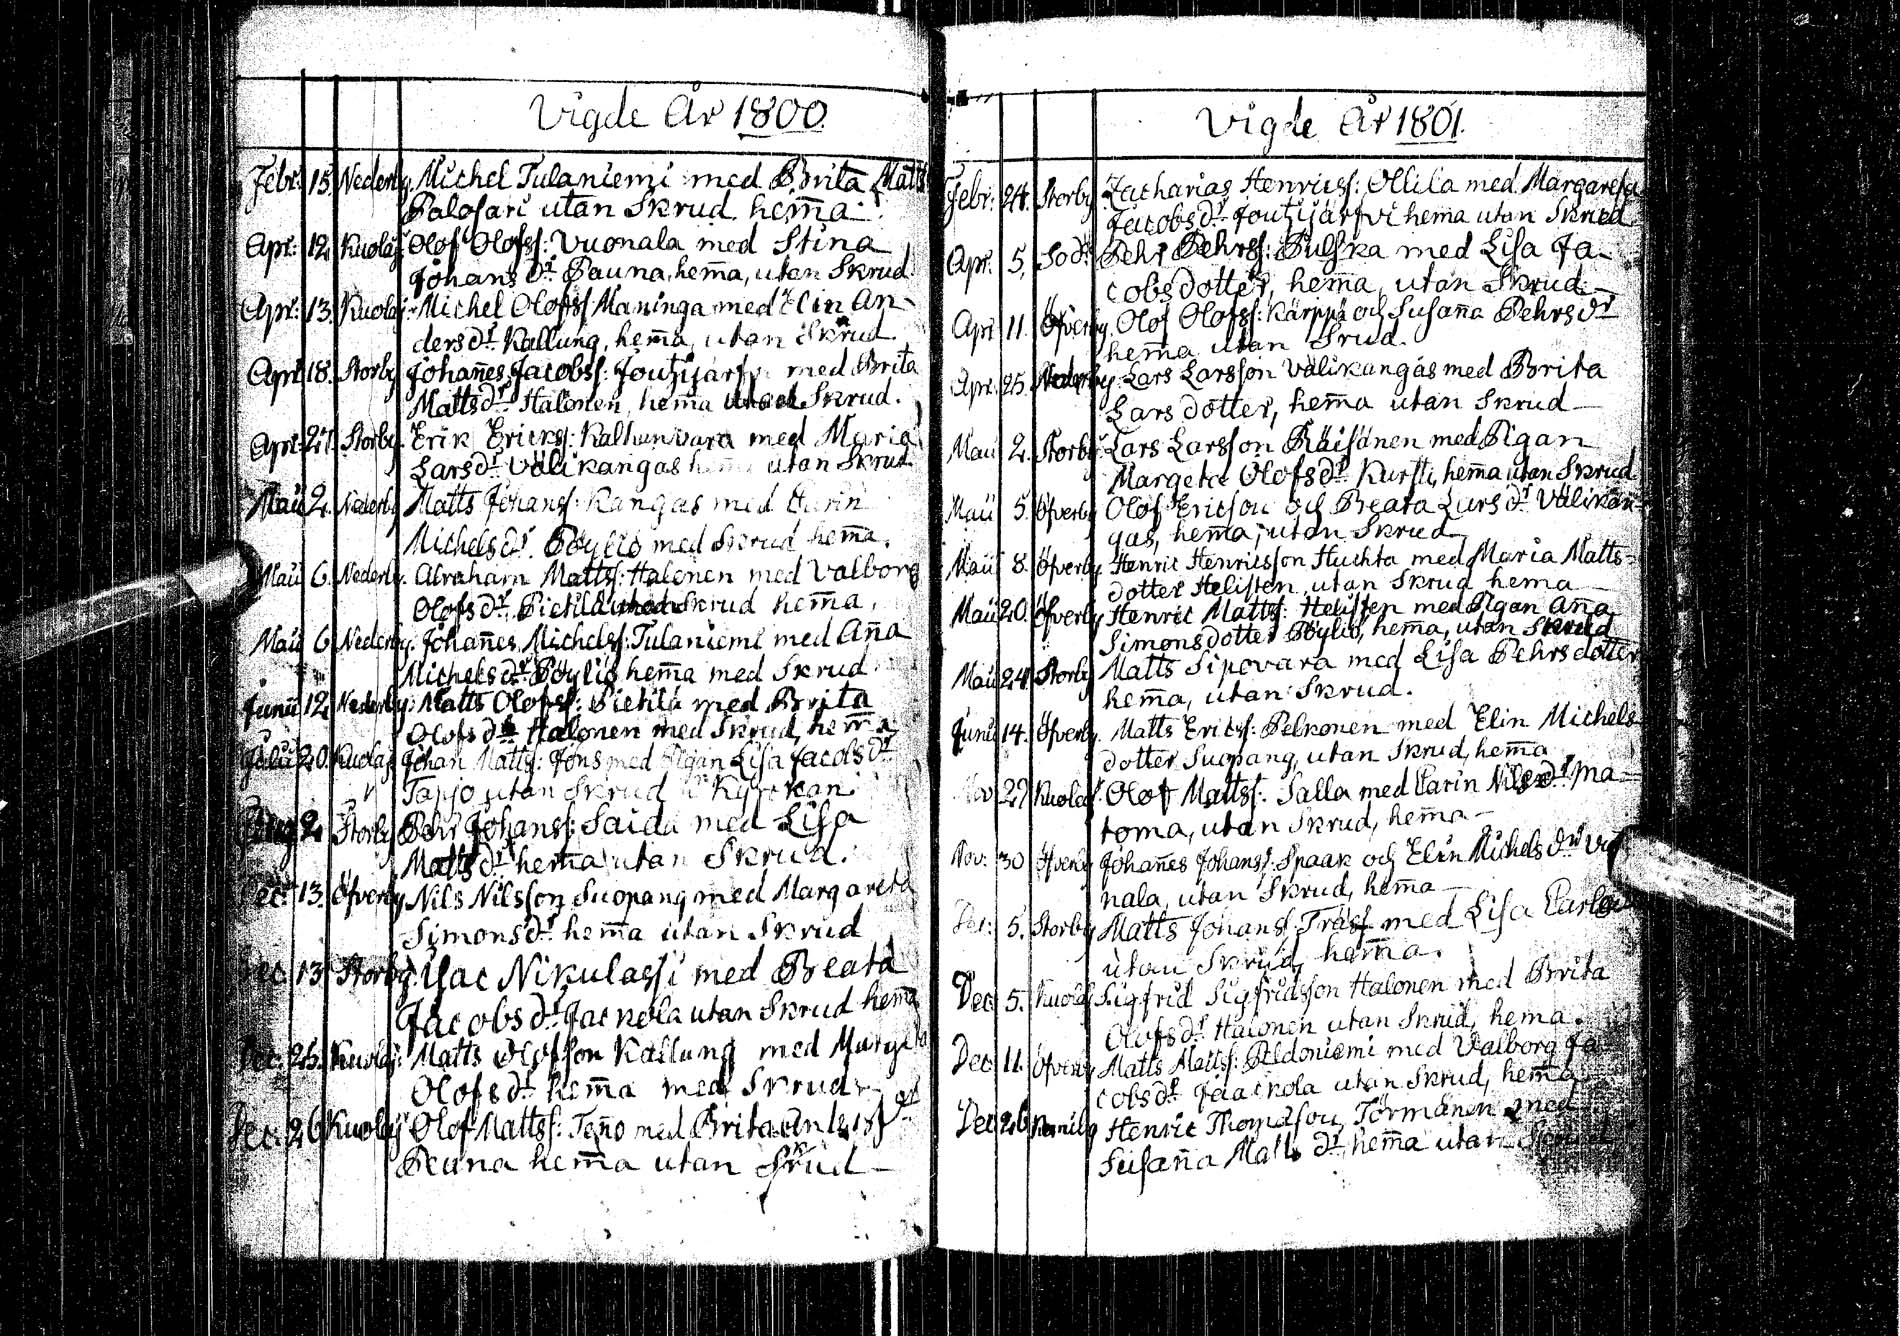 Vigde År 1800.
Febr: 15. Nederby. Michel Tulaniemi med Brita Matts
Palosari utan Skrud hem̅a
Apr: 12. Kuolaj: Olof Olofss: Vuonala med Stina
Johans dr Pauna, hem̅a, utan Skrud.
Apr: 13. Kuolaj: Michel Olofss: Maninga med Elin An-
ders dr Kallung, hem̅a, utan Skrud
Apr: 18. Storby Johan̅es Jacobss: Joutzijärfvi med Brita
Matts dr Halonen, hem̅a utan Skrud.
Apr: 27. Storby. Erik Ericks: Kalhunvara med Maria
Lars dr Välikangas hem̅a utan Skrud
Maii 2. Nederby Matts Johanss: Kangas med Carin
Michels dr Pöyliö med Skrud hem̅a.
Maii 6. Nederby. Abraham Mattss: Halonen med Valborg
Olofs dr Pietilä Skrud hem̅a.
Maii 6. Nederby. Johan̅es Michelss: Tulaniemi med An̅a
Michels dr Pöyliö hem̅a med Skrud
Junii 12. Nederby: Matts Olofss: Pietilä med Brita
Olofs dr Halonen med Skrud, hem̅a
Julii 20. Kuolaj Johan Mattss: Jons med Pigan Lisa Jacobs dr
Tapjo utan Skrud i Kyrckan
2. Storby Pehr Johanss: Saida med Lisa
Matts dr hem̅a utan Skrud.
Dec: 13. Öfverby Nils Nilsson Suopang med Margareta
Simons dr hem̅a utan Skrud
Dec: 13. Storby. Isac Nikulassi med Beata
Jacobs dr Jackola utan Skrud hem̅a
Dec: 26. Kuolaj: Matts Olofsson Kallung med Margeta
Olofs dr hem̅a med Skrud
Dec: 26 Kuolaj Olof Mattss: Ten̅o med Brita Anders dr
Peuna hem̅a utan Skrud
Vigde År 1801.
Febr: 24. Storby. Zacharias Henricss: Ollila med Margareta
Jacobs dr Joutzijärfvi hem̅a utan Skrud
Apr: 5. Sod: Pehr Pehrss: Pulska med Lisa Ja-
cobsdotter, hem̅a, utan Skrud.
Apr 11. Öfverby. Olof Olofss: Kärppä och Susan̅a Pehrs dr
hem̅a utan Srud.
Apr: 25. Nederby. Lars Larsson Välikangas med Brita
Lars dotter, hem̅a utan Skrud
Maii 2. Storby: Lars Larsson Räisänen med Pigan
Margeta Olofs dr Kursti, hem̅a, utan Skrud
Maii 5. Öfverby Olof Ericson och Beata Lars dr Välikan-
gas, hem̅a, utan Skrud
Maii 8. Öfverby Henric Henricsson Huchta med Maria Matts-
dotter Helisten, utan Skrud hem̅a
Maii 20. Öfverby Henric Mattss: Helisten med Pigan An̅a
Simonsdotter Pöyliö, hem̅a, utan Skrud
Maii 24. Storby Matts Sipovara med Lisa Pehrs dotter
hem̅a, utan Skrud.
Junii 14. Öfverby. Matts Ericss: Pelkonen med Elin Michels-
dotter Suopang, utan Skrud, hem̅a
Nov 29 Kuolaj. Olof Mattss: Salla med Carin Nils dr Ma-
toma, utan Skrud, hem̅a
Nov: 30 Öfverby Johan̅es Johanss: Spaak och Elin Michels dr Vuo
nala, utan Skrud, hem̅a
Dec: 5. Storby Matts Johans Träsk med Lisa
utan Skrud, hem̅a.
Dec: 5. Kuolaj Sigfrid Sigfridsson Halonen med Brita
Olofs dr Halonen utan Skrud, hem̅a.
Dec 11. Öfverby Matts Mattss: Peldoniemi med Valborg Ja-
cobs dr Jaackola utan Skrud, hem̅a
Dec 26 Henric Thomasson Törmänen med
Susan̅a Matts dr, hem̅a utan Skrud